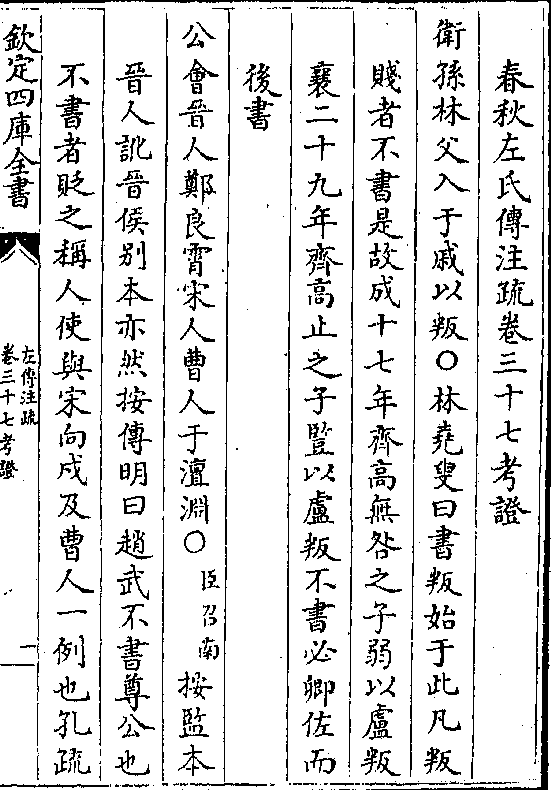 春秋左氏傳注疏卷三十七考證
衛孫林父入于戚以叛○林堯叟曰書叛始于此凡叛
賤者不書是故成十七年齊高無咎之子弱以盧叛
襄二十九年齊高止之子豎以盧叛不書必卿佐而
後書
公會晉人鄭良霄宋人曹人于澶淵○臣召南按監本
晉人訛晉侯别本亦然按傳明曰趙武不書尊公也
不書者貶之稱人使與宋向戍及曹人一例也孔疏
欽定四庫全書
左傳注疏
卷三十七考證
一